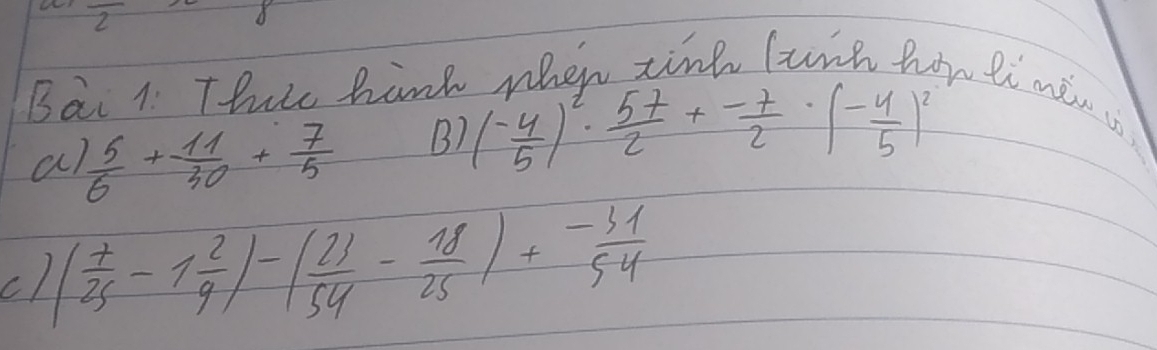 2 8
Bài 1: Thực hành phép tính (tính hợp lí nếu
a) 5/6 + -11/30 + 7/5 B) (-4/5)² · 57/2 + -7/2 · (-4/5)²
c) (7/25 - 1 2/9) - (23/54 - 18/25) + -31/54